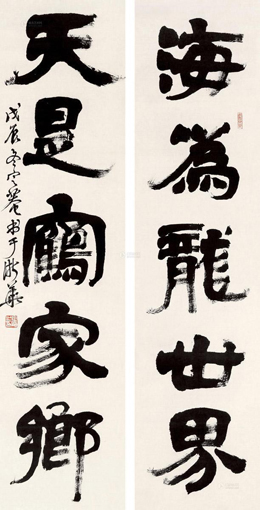 海為龍世界
天是鶴家鄉
戊辰冬